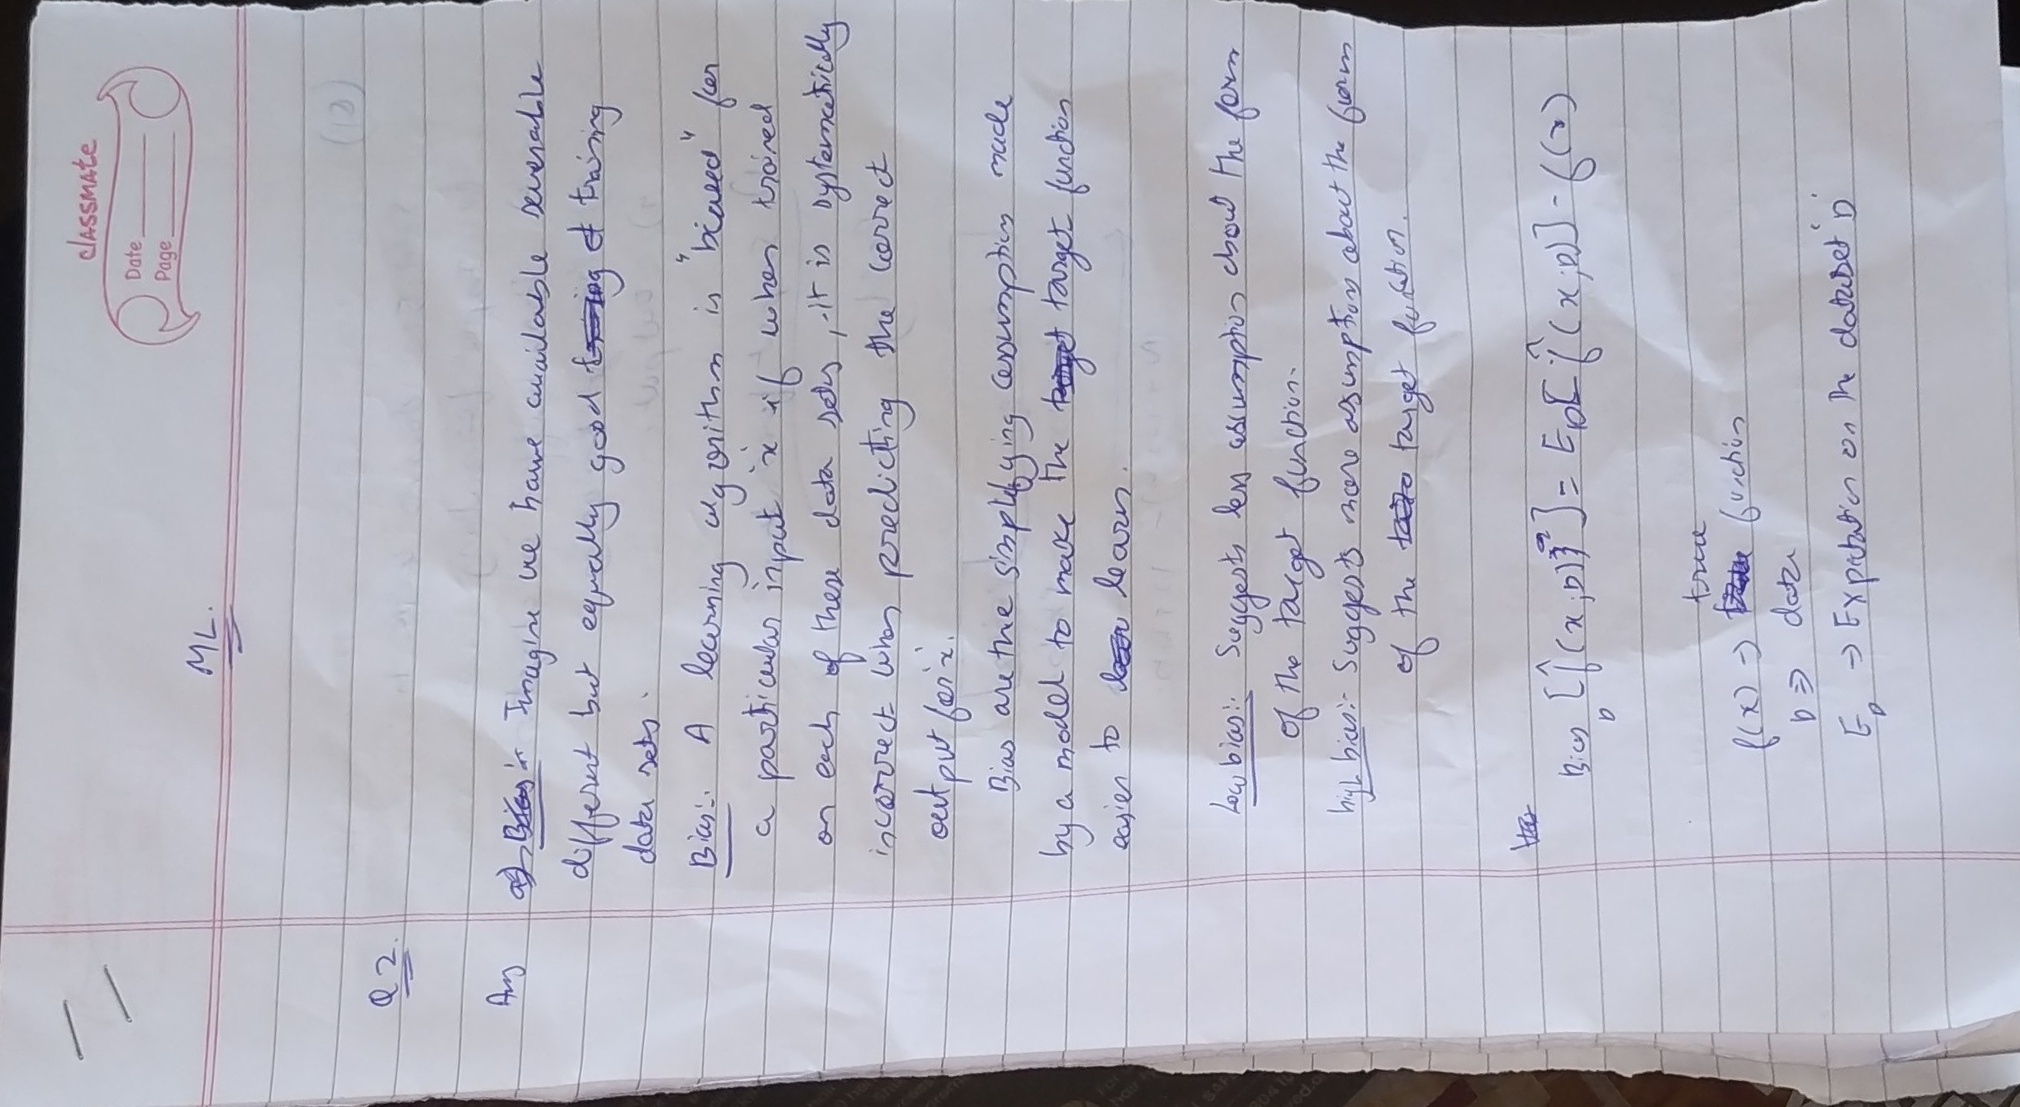 classmate
Date
Page
ML.
Q2.
Ans Imagine we have available severable
different but equally good training
data sets.
Bias:- A learning algorithm is "biased" for
a particular input 'x' if when trained
on each of these data sets, it is systematically
incorrect when predicting the correct
output for 'x'.
Bias are the simplifying assumption made
by a model to make the target function
easier to learn.
Low bias:- Suggests less assumption about the form
of the target function.
high bias:- Suggests more assumption about the form
of the target function.
Bias_D [f̂(x,D)] = E_D[f̂(x;D)] - f(x)
f(x) → true function
D ⇒ data
E_D → Expectation on the dataset 'D'